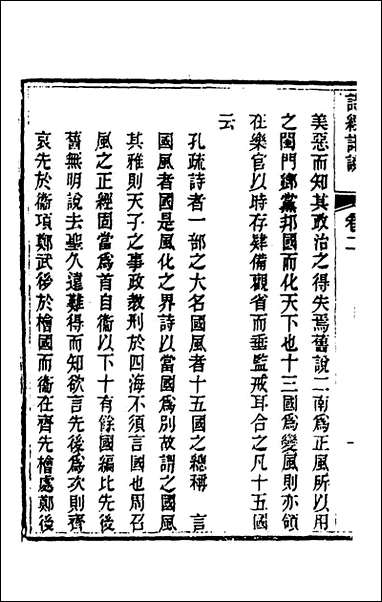 詩經詳說 卷二 一
美惡而知其政治之得失焉舊說二南爲正風所以用
之閨門鄉黨邦國而化天下也十三國爲變風則亦領
在樂官以時存肄備觀省而垂監戒耳合之凡十五國
云
孔疏詩者一部之大名國風者十五國之總稱 言
國風者國是風化之界詩以當國爲別故謂之國風
其雅則天子之事政敎刑於四海不須言國也周召
風之正經固當爲首自衛以下十有餘國編比先後
舊無明說去聖久遠難得而知欲言先後爲次則齊
哀先於衛項鄭武後於檜國而衛在齊先檜處鄭後